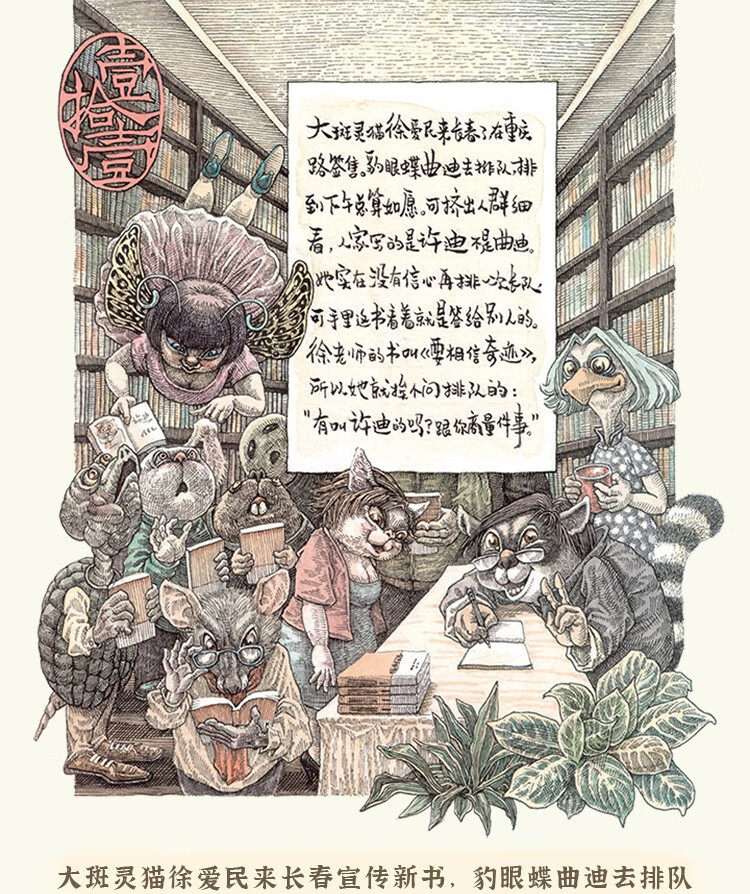 壹拾壹
大斑灵猫徐爱民来长春了在重庆
路签售。豹眼蝶曲迪去排队,排
到下午总算如愿。可挤出人群细
看,人家写的是许迪不是曲迪。
她实在没有信心再排一次长队
可手里这书看着就是签给别人的。
徐老师的书叫《要相信奇迹》,
所以她就挨个问排队的:
“有叫许迪的吗?跟你商量件事。”
大斑灵猫徐爱民来长春宣传新书,豹眼蝶曲迪去排队